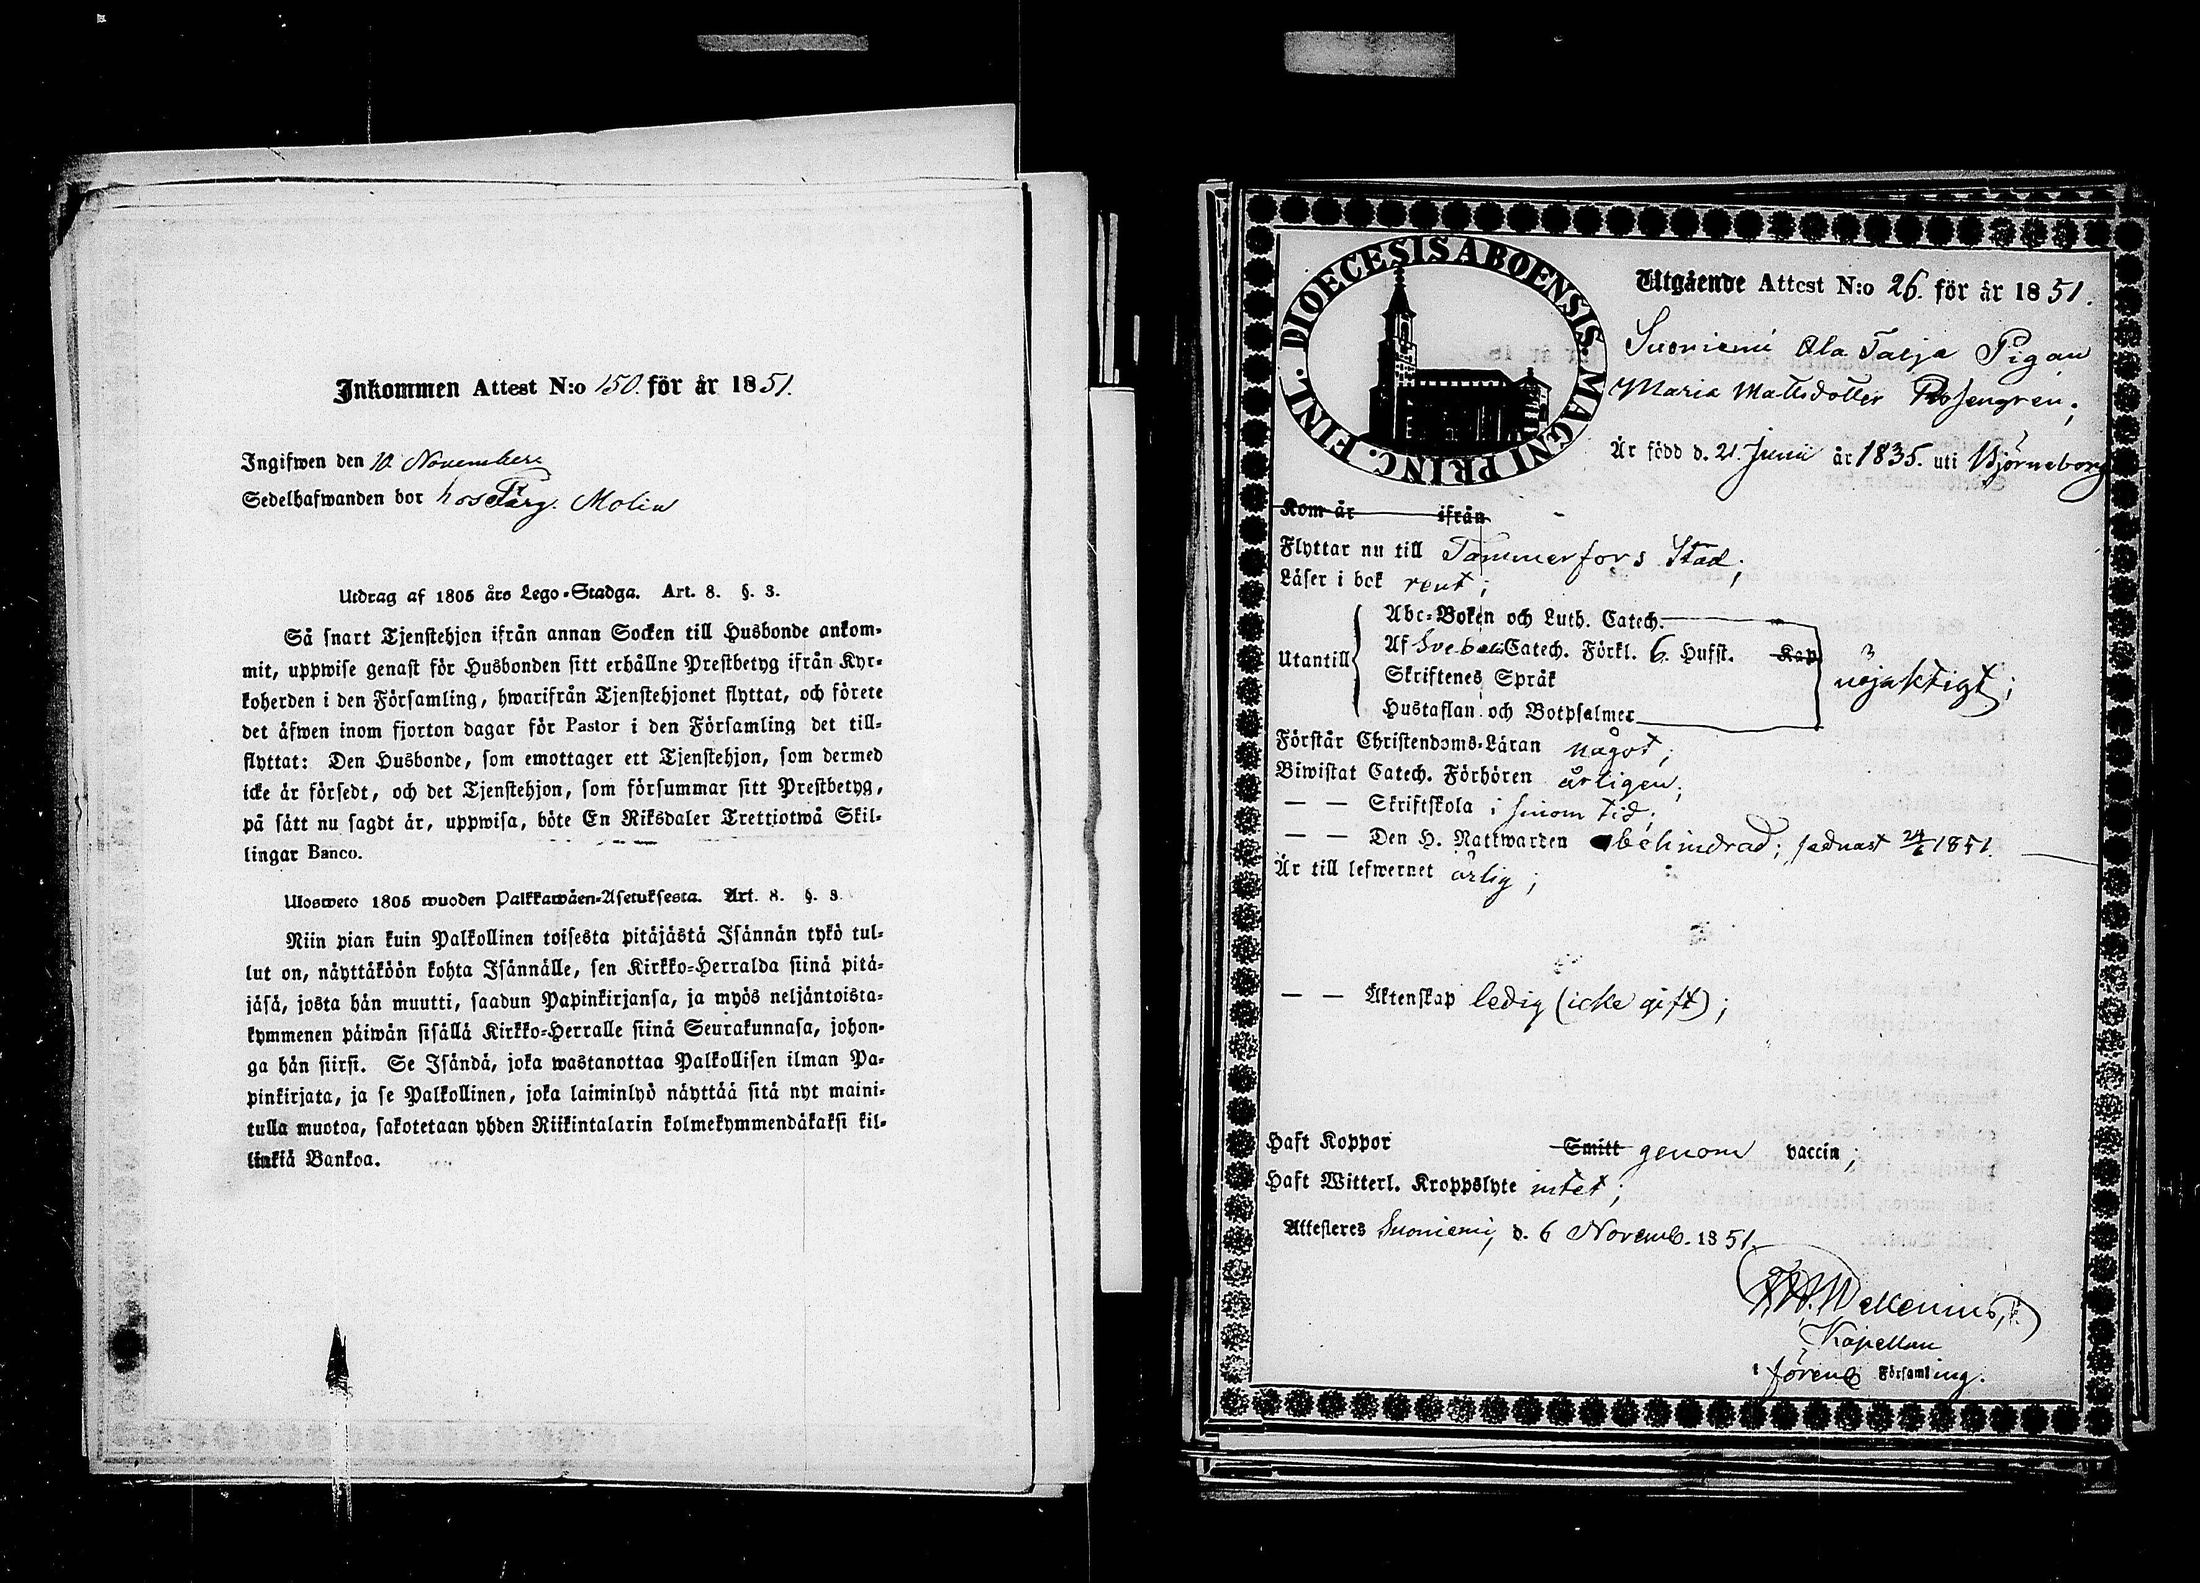 Inkommen Attest N:o 150. för år 1851.
Ingifwen den 10 November
Sedelhafwanden bor hos Färg. Molin
Utdrag af 1805 års Lego-Stadga. Art. 8. §. 3.
Så snart Tjenstehjon ifrån annan Socken till Husbonde ankom-
mit, uppwise genast för Husbonden sitt erhållne Prestbetyg ifrån Kyr-
koherden i den Församling, hwarifrån Tjenstehjonet flyttat, och förete
det äfwen inom fjorton dagar för Pastor i den Församling det till-
flyttat: Den Husbonde, som emottager ett Tjenstehjon, som dermed
icke är försedt, och det Tjenstehjon, som försummar sitt Prestbetyg,
på sätt nu sagdt är, uppwisa, böte En Riksdaler Trettiotwå Skil-
lingar Banco.
Ulosweto 1805 wuoden Palkkawäen-Asetuksesta. Art. 8. §. 3.
Niin pian kuin Palkollinen toisesta pitäjästä Isännän tykö tul-
lut on, näyttäköön kohta Isännälle, sen Kirkko-Herralda siinä pitä-
jäsä, josta hän muutti, saadun Papinkirjansa, ja myös neljäntoista-
kymmenen päiwän sisällä Kirkko-Herralle siinä Seurakunnasa, johon-
ga hän siirsi. Se Isändä, joka wastanottaa Palkollisen ilman Pa-
pinkirjata, ja se Palkollinen, joka laiminlyö näyttää sitä nyt maini-
tulla muotoa, sakotetaan yhden Riikintalarin kolmekymmendäkaksi kil-
linkiä Bankoa.
DIOECESIS ABOENSIS. MAGNI PRINC. FINL.
Utgående Attest N:o 26. för år 1851.
Suoniemi Ala Taipa Pigan
Maria Mattsdotter Rosengren;
Är född d. 21. Junii år 1835. uti Björneborg
Kom år ifrån
Flyttar nu till Tammerfors Stad;
Läser i bok rent;
Utantill
Abc-Boken och Luth. Catech.
Af Svebelii Catech. Förkl. 6. Hufst. Kap
Skriftenes Språk
Hustaflan och Botpsalmer
nöjaktigt;
Förstår Christendoms-Läran något;
Biwistat Catech. Förhören årligen;
— — Skriftskola i sinom tid;
— — Den H. Nattwarden obehindrad; sednast 24/6 1851.
Är till lefwernet ärlig;
— — Äktenskap ledig (icke gift);
Haft Koppor Smitt genom vaccin;
Haft Witterl. Kroppslyte intet;
Attesteres Suoniemi, d. 6 Novemb. 1851.
Wallenius,
Kapellan
i föreng Församling.